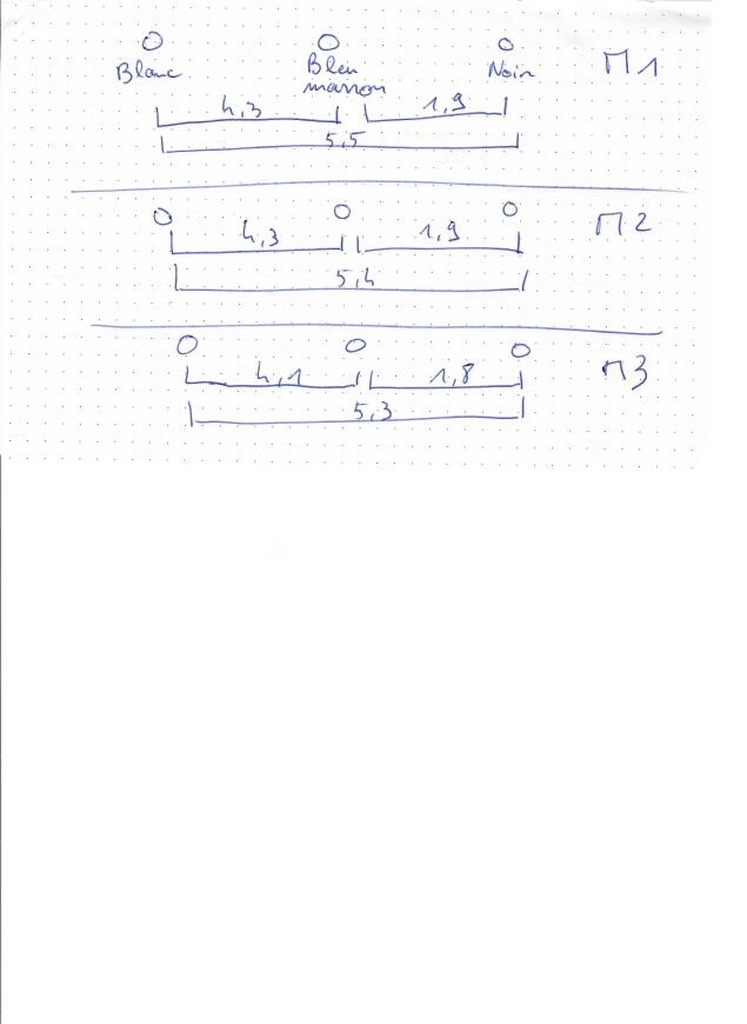 Blanc
Bleu
marron
Noir
M1
4,3
1,9
5,5
M2
4,3
1,9
5,4
M3
4,1
1,8
5,3